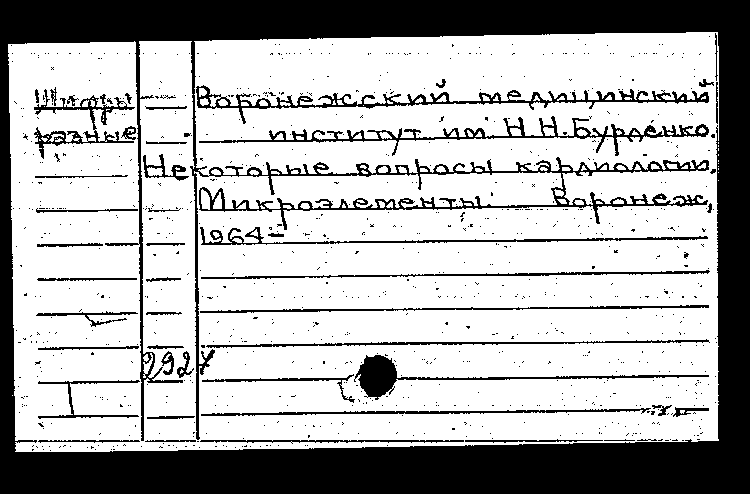 Шифры Воронежсский медицинский
разные институт им. Н.Н.Бурденко.
Некоторые вопросы кардиологии.
Микроэлементы. Воронеж,
1964-
2927